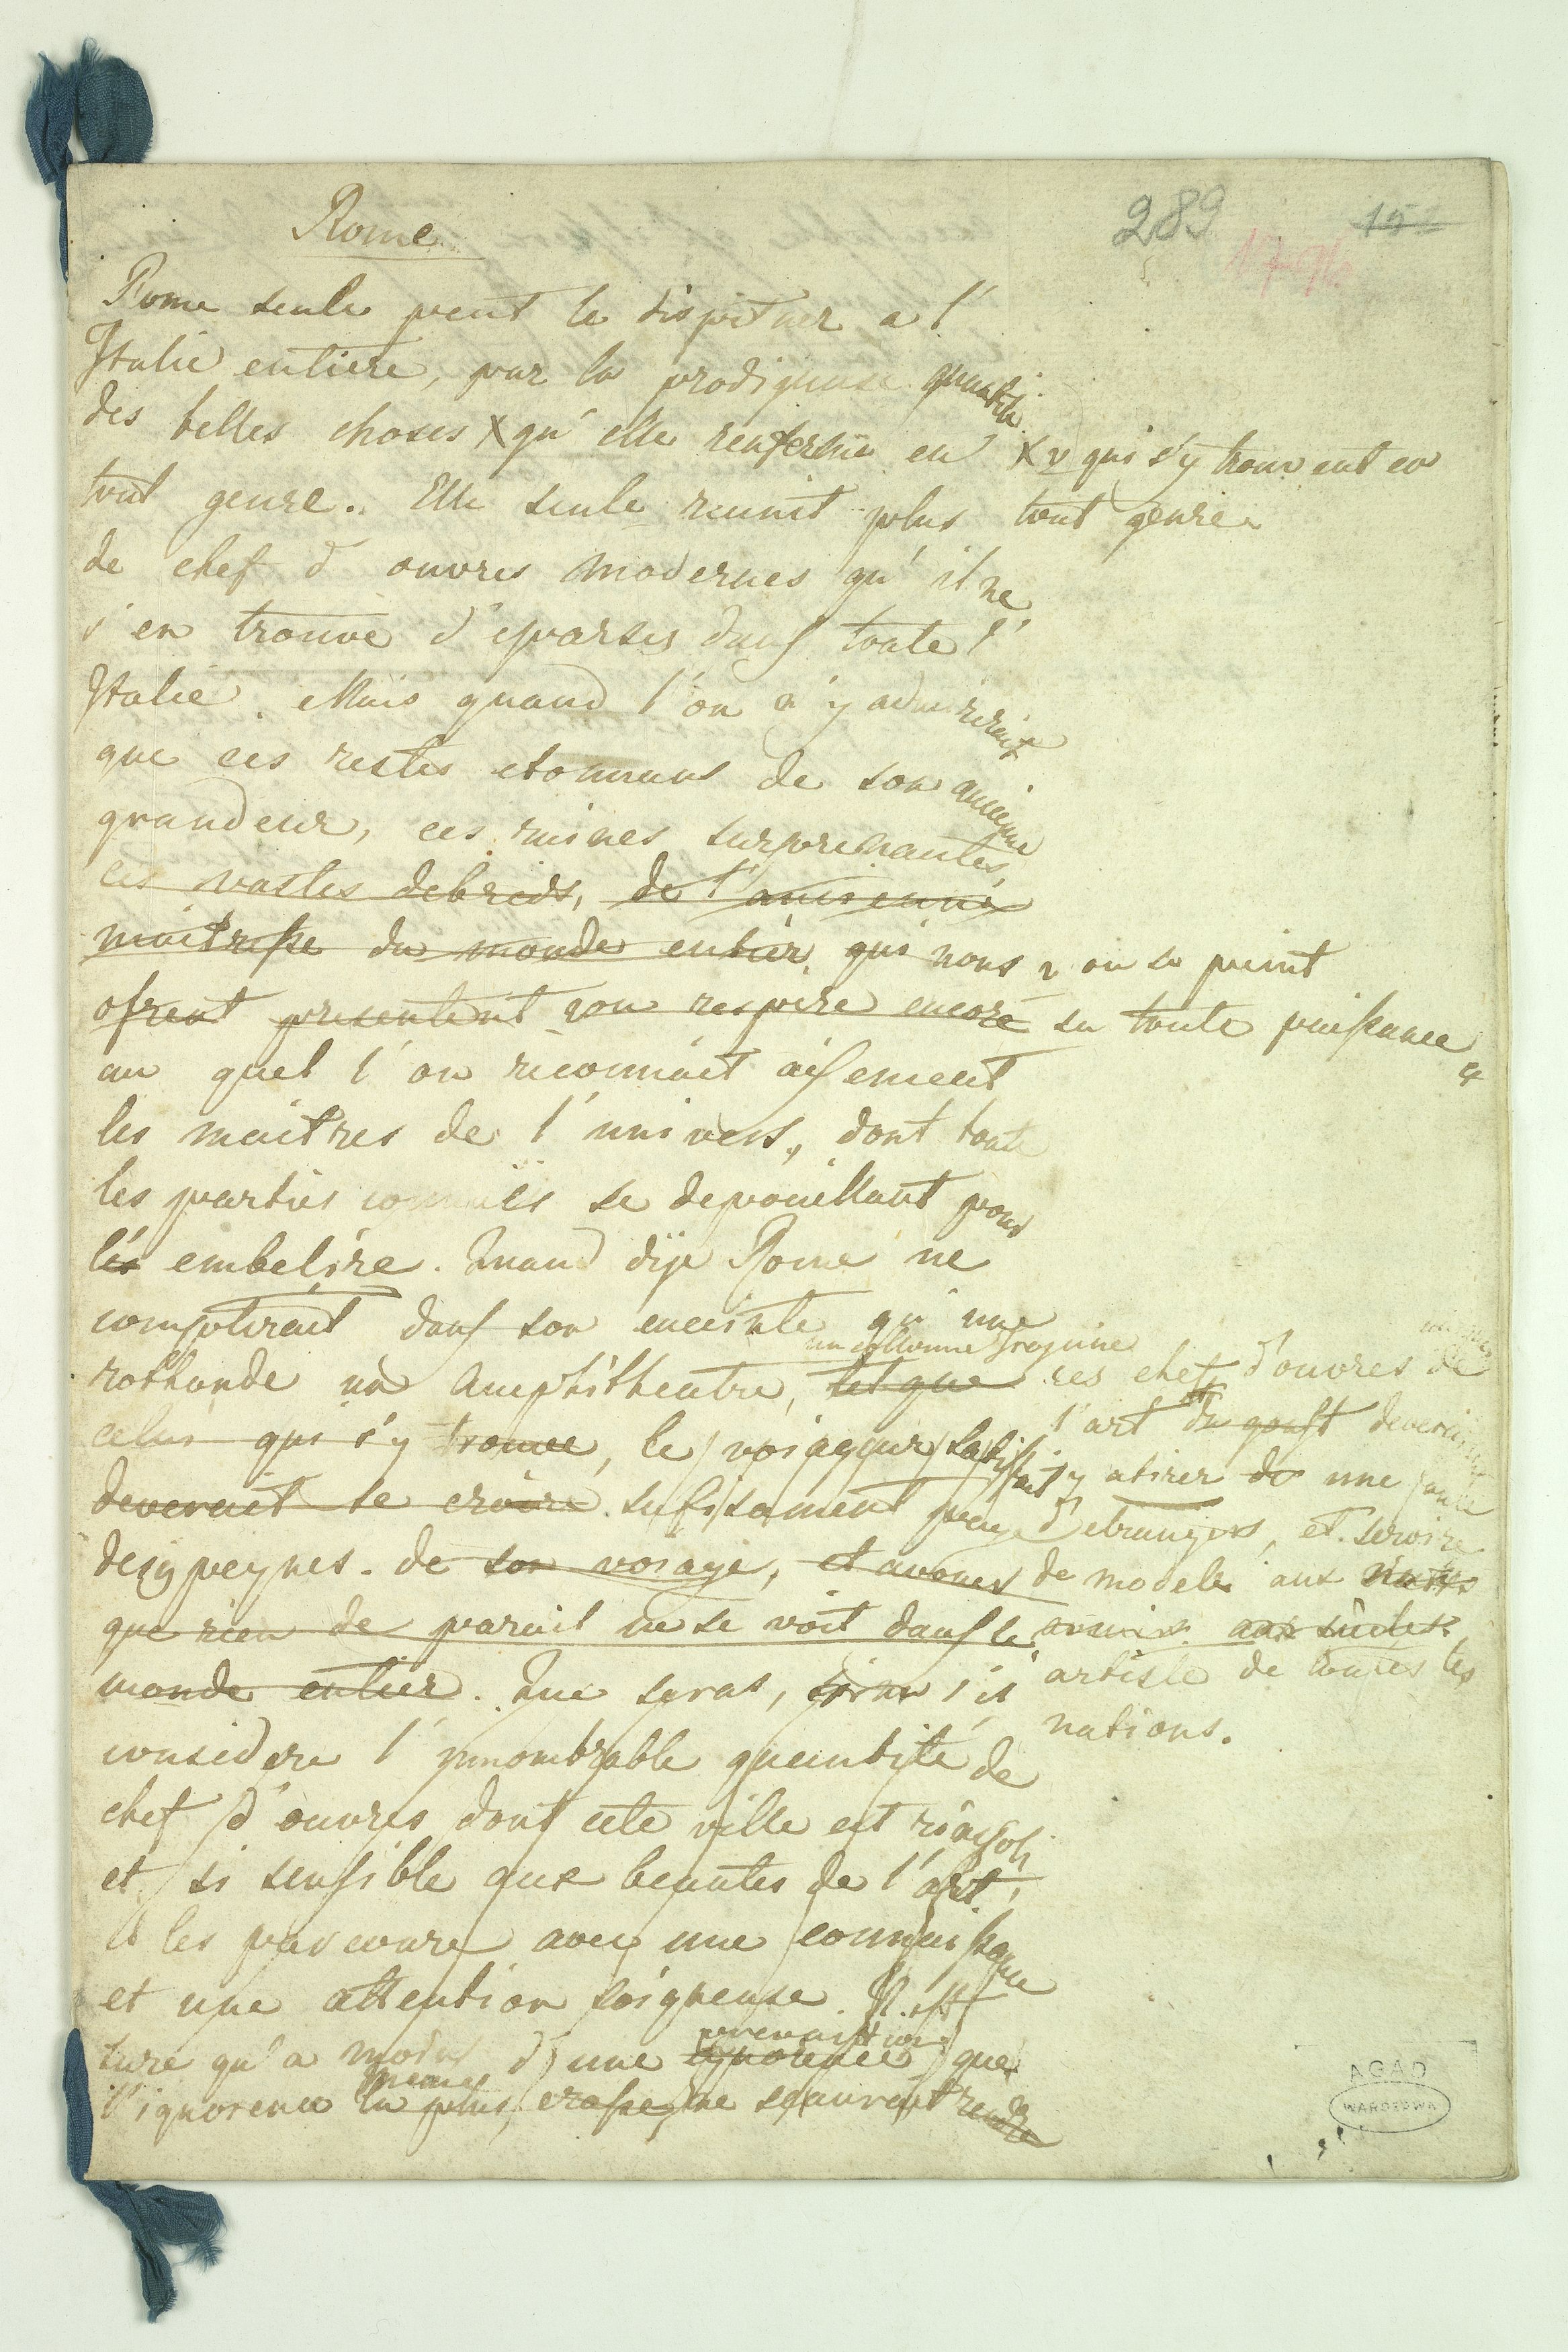 Rome
289
152
Rome seule peut le disputuer a l'
Italie entiere, par la prodigieuse quantité
des belles choses X qu' elle renferme en
tout genre. Elle seule reunit plus
de chef d ouvres modernes qu' il ne
s' en trouve d' eparses dans toute l'
Italie. Mais quand l' on n' y admirerait
que ces restes etonnans de son ancienne
grandeur, ces ruines surprenantes,
ces vastes debrids, de l' ancienne
maitresse du monde entier, qui nous
ofrent presentent ou respire encore
au quel l' on reconnait aisement
les maitres de l' univers, dont toute
les parties se depouillant pour
les embelire. Quand dije Rome ne
compterait dans son enceinte qu' une
un collonne Trajuine
rothonde un Amphitheatre, tel que
celui qui s'y trouve, le voiageur satisfait
deverait se croire sufisament paye
desy peynes. de son voiage, et avouer
que rien de pareil ne se voit dans le
monde entier. Que seras, s' il
considere l' ynnombrable quantité de
chef d' ouvres dont cete ville est
et si sensible aux beautes de l' art,
il les parcoure avec une connaissance
et une attention soigneuse. Il est
prevention
sure qu' a moins d' une ignorence que
meme
l' ignorence la plus crasse, ne scaurent rendre
X qui s'y trouvent en
tout genre
ou se peint
sa toute puissance
&
ces chef d'ouvres de
l' art du goust deveraient
y atirer de une foule
d' etrangers, et servire
de modele aux
artiste de toutes les
nations.
AGAD
WARSZAWA